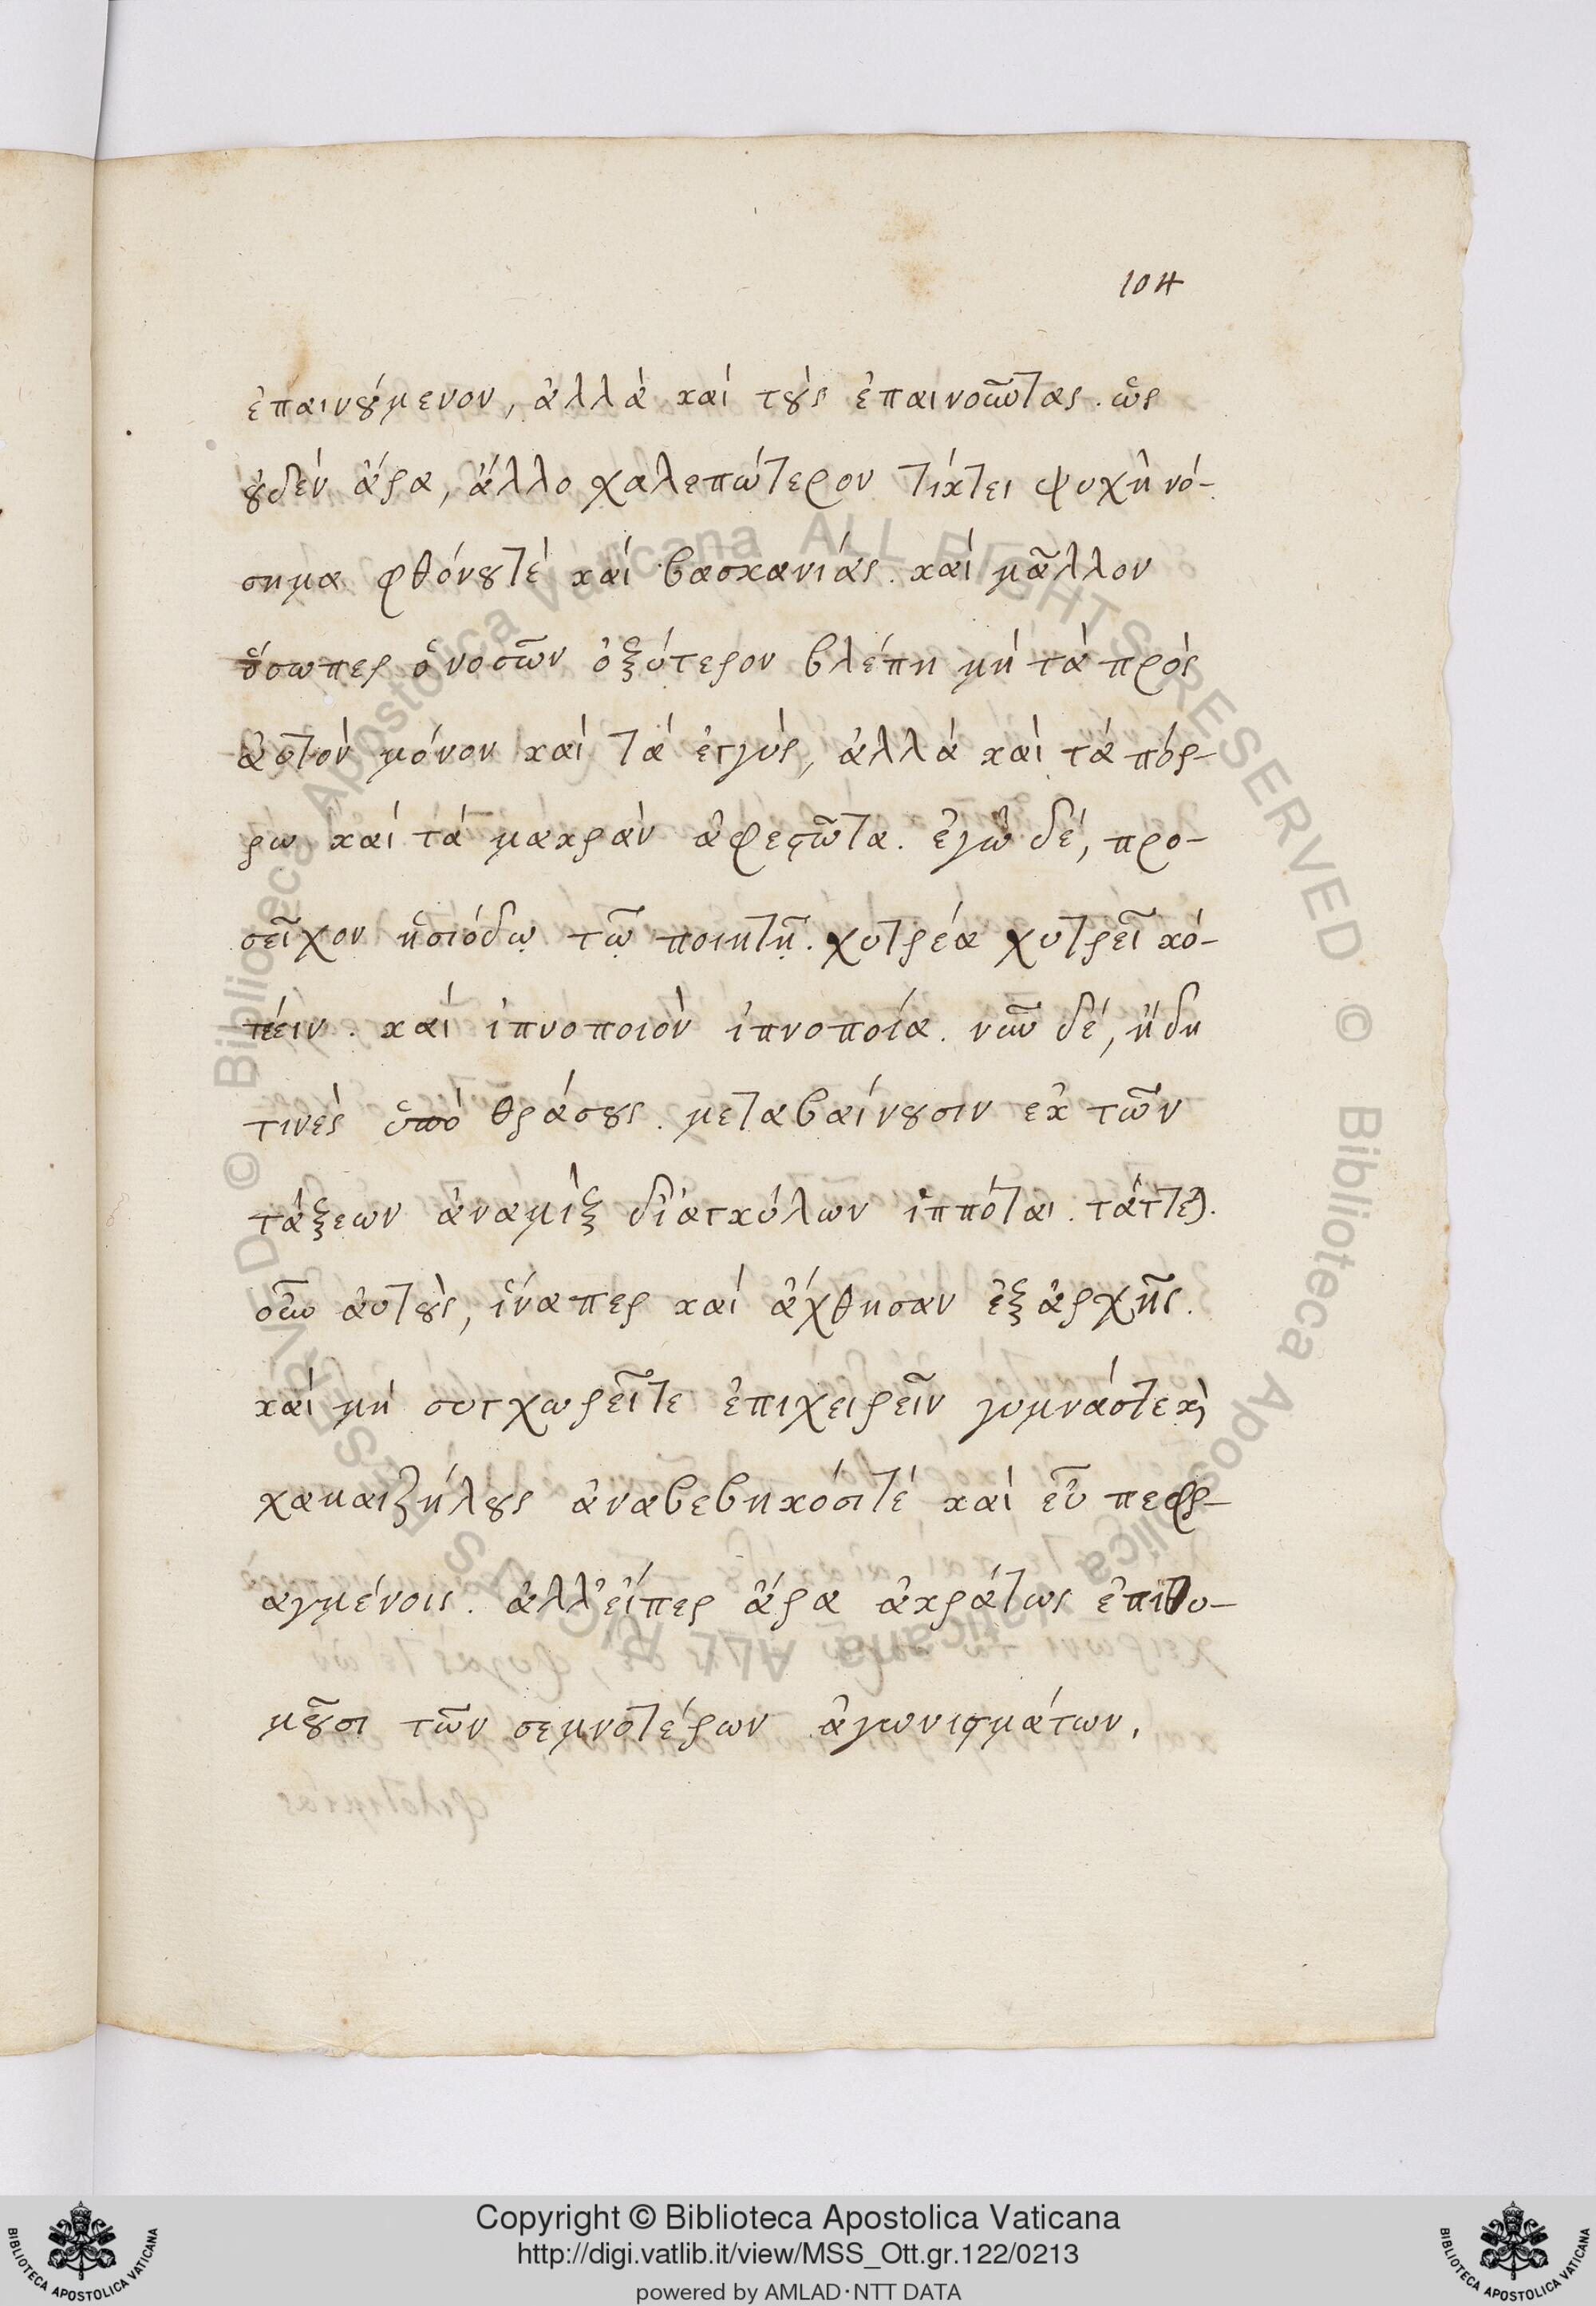 104
ἐπαινούμενον, ἀλλὰ καὶ τοὺς ἐπαινοῦντας. ὡς
οὐδὲν ἄρα, ἄλλο χαλεπώτερον τίκτει ψυχὴ νό-
σημα φθόνουτέ καὶ βασκανίας. καὶ μᾶλλον
ὅσωπερ ὁ νοσῶν ὀξύτερον βλέπη μὴ τὰ πρὸς
ἀυτὸν μόνον καὶ τὰ ἐγγὺς, ἀλλὰ καὶ τὰ πόρ-
ρω καὶ τὰ μακρὰν ἀφεστῶτα. ἐγὼ δέ, προ-
σεῖχον ἡσιόδῳ τῷ ποιητῇ. χυτρέα χυτρεῖ κό-
τέειν. καὶ ἰπνοποιὸν ἰπνοποία. νῦν δέ, ἤδη
τινὲς ὑπὸ θράσους. μεταβαίνουσιν ἐκ τῶν
τάξεων ἀναμὶξ δἰάγκύλων ἱππόται. τάττεται.
οὖν ἀυτοὺς, ἵναπερ καὶ ἄχθησαν ἐξἀρχῆς.
καὶ μὴ συγχωρεῖτε ἐπιχειρεῖν γυμνάστε καὶ
χαμαιζήλους ἀναβεβηκόσιτέ καὶ εὖ πεφρ-
αγμένοις. ἀλλ᾽ εἴπερ ἄρα ἀκράτως ἐπιθυ-
μοῦσι τῶν σεμνοτέρων ἀγωνισμάτων,
Copyright © Biblioteca Apostolica Vaticana
http://digi.vatlib.it/view/MSS_Ott.gr.122/0213
powered by AMLAD·NTT DATA
BIBLIOTECA APOSTOLICA VATICANA
BIBLIOTECA APOSTOLICA VATICANA
© Biblioteca Apostolica Vaticana ALL RIGHTS RESERVED
© Biblioteca Apostolica Vaticana ALL RIGHTS RESERVED